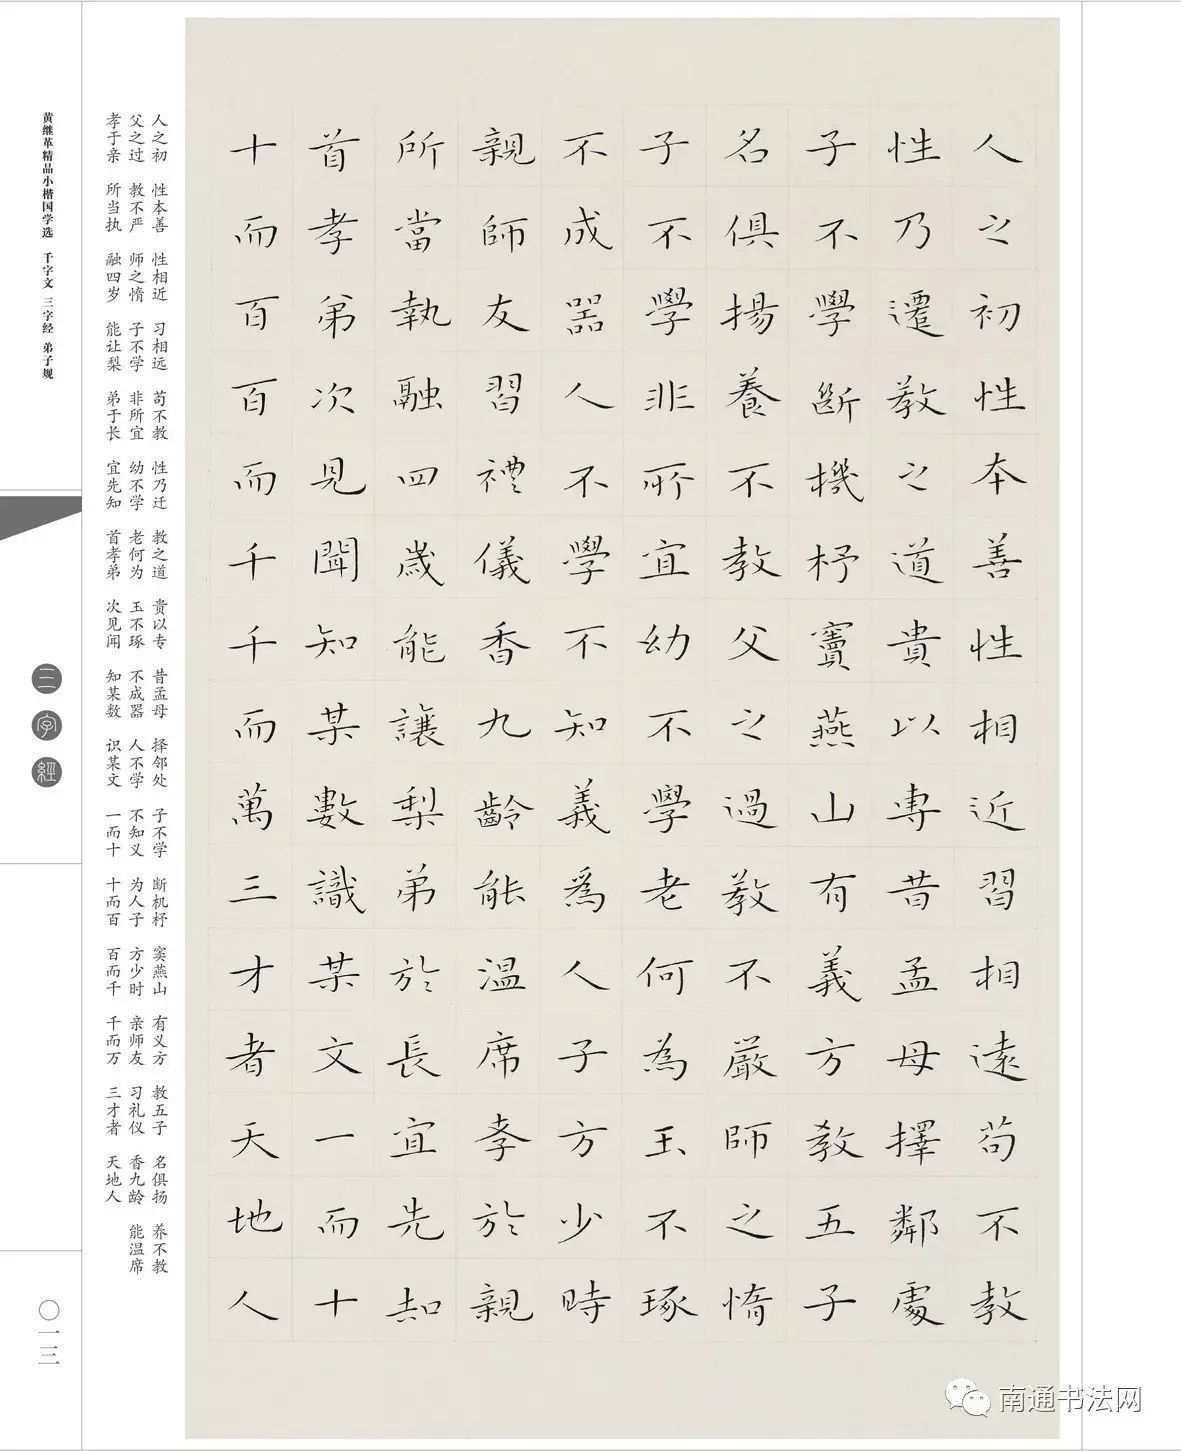 人之初性本善性相近習相遠苟不教
性乃遷教之道貴以專昔孟母擇鄰處
子不學斷機杼竇燕山有義方教五子
名俱揚養不教父之過教不嚴師之惰
子不學非所宜幼不學老何為玉不琢
不成器人不學不知義為人子方少時
親師友習禮儀香九齡能溫席孝於親
所當執融四歲能讓梨弟於長宜先知
首孝弟次見聞知某數識某文一而十
十而百百而千千而萬三才者天地人
人之初 性本善 性相近 习相远 苟不教 性乃迁 教之道 贵以专 昔孟母 择邻处 子不学 断机杼 窦燕山 有义方 教五子 名俱扬 养不教
父之过 教不严 师之惰 子不学 非所宜 幼不学 老何为 玉不琢 不成器 人不学 不知义 为人子 方少时 亲师友 习礼仪 香九龄 能温席
孝于亲 所当执 融四岁 能让梨 弟于长 宜先知 首孝弟 次见闻 知某数 识某文 一而十 十而百 百而千 千而万 三才者 天地人
黄继革精品小楷国学选 千字文 三字经 弟子规
三字經
〇一三
南通书法网